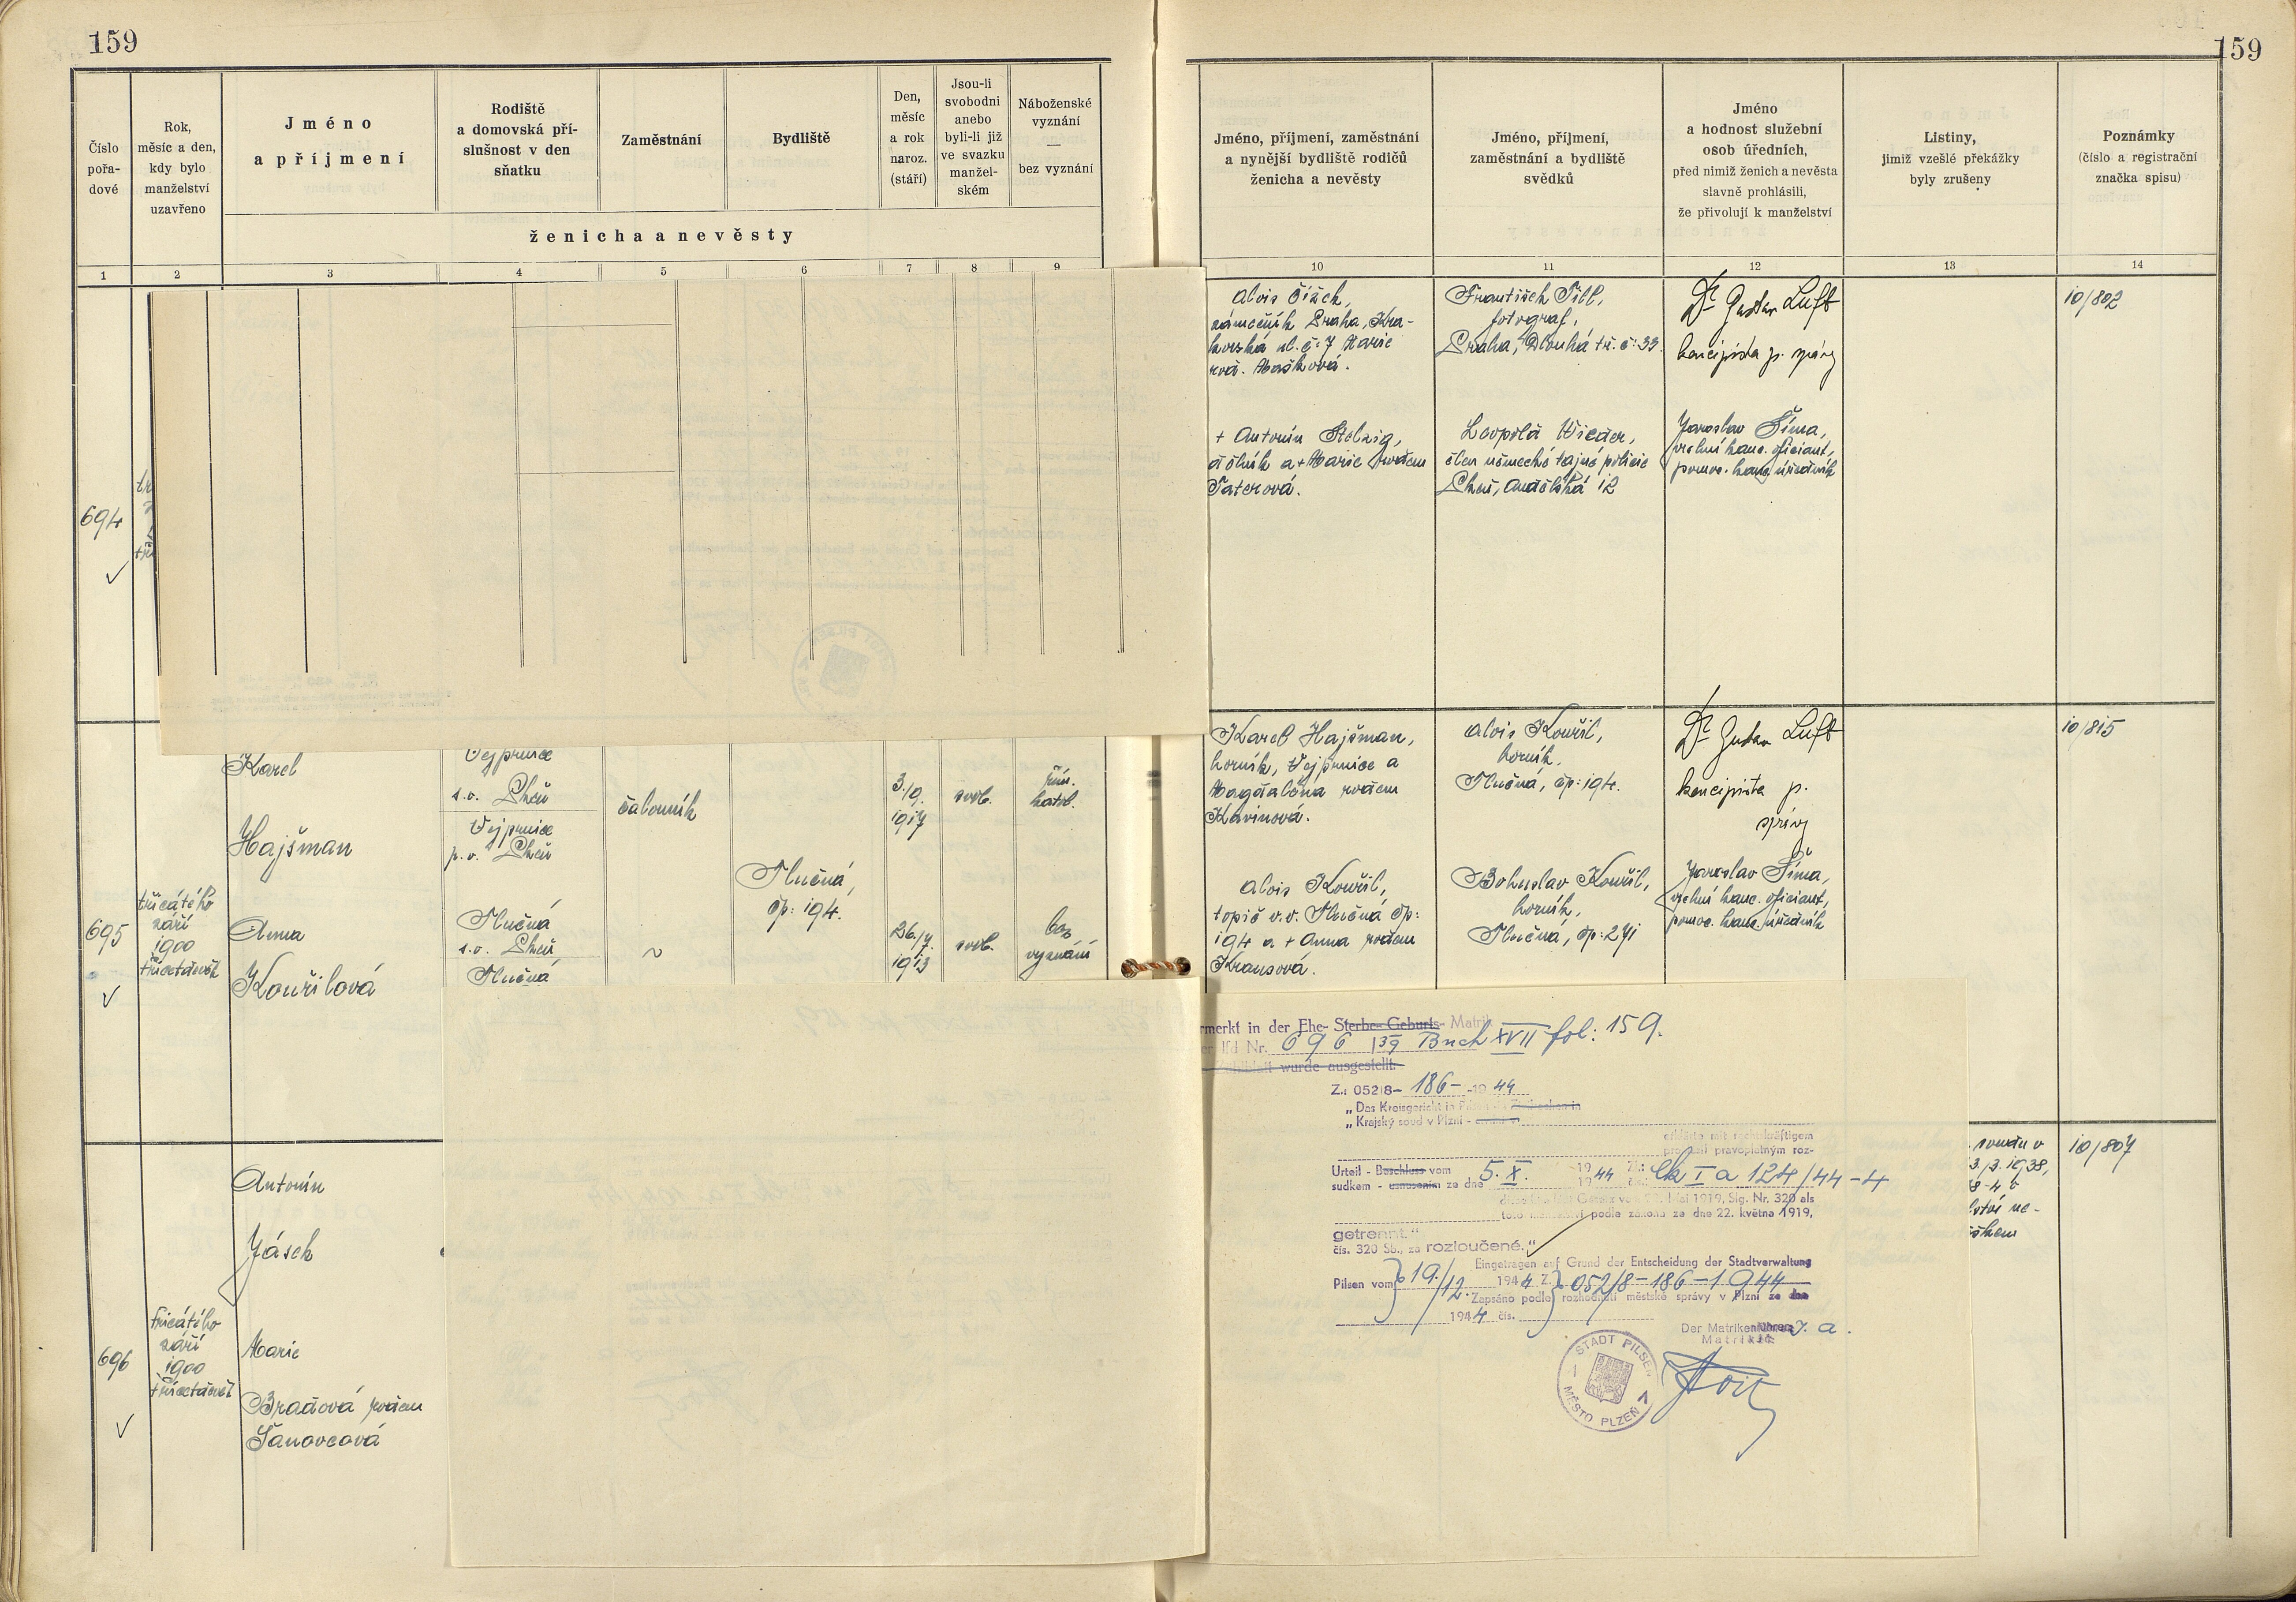 159
159
Číslo
pořa-
dové
Rok,
měsíc a den,
kdy bylo
manželství
uzavřeno
Jméno
a příjmení
Rodiště
a domovská pří-
slušnost v den
sňatku
Zaměstnání
Bydliště
Den,
měsíc
a rok
naroz.
(stáří)
Jsou-li
svobodni
anebo
byli-li již
ve svazku
manžel-
ském
Náboženské
vyznání
—
bez vyznání
ženicha a nevěsty
Jméno, příjmení, zaměstnání
a nynější bydliště rodičů
ženicha a nevěsty
Jméno, příjmení,
zaměstnání a bydliště
svědků
Jméno
a hodnost služební
osob úředních,
před nimiž ženich a nevěsta
slavně prohlásili,
že přivolují k manželství
Listiny,
jimiž vzešlé překážky
byly zrušeny
Poznámky
(číslo a registrační
značka spisu)
1 2 3 4 5 6 7 8 9 10 11 12 13 14
694
Alois Čížek,
zámečník Praha, Kra-
kovská ul. č. 7 Marie
roz. Mašková.
František Till,
fotograf,
Praha, Dlouhá tř. č: 33.
Dr Gustav Luft
koncipista p. správy
10/802
+ Antonín Stelzig,
dělník a + Marie rodem
Taterová.
Leopold Wieder,
člen německé tajné policie
Plzeň, Andělská 12
Jaroslav Šíma,
vrchní kanc. oficiant,
pomoc. kanc. úředník
695
třicátého
září
1900
třicetdevět
Karel
Hajšman
Vejprnice
s.o. Plzeň
Vejprnice
p.o. Plzeň
čalouník
3./9.
1917
svob.
řím.
katol.
Tlučná,
čp: 194.
Anna
Kouřilová
Tlučná
s.o. Plzeň
Tlučná
~
26./7.
1913
svob.
bez
vyznání
Karel Hajšman,
horník, Vejprnice a
Magdaléna rodem
Kavinová.
Alois Kouřil,
horník,
Tlučná, čp: 194.
Dr Gustav Luft
koncipista p.
správy
10/815
Alois Kouřil,
topič v.v. Tlučná čp:
194 a + Anna rodem
Krausová.
Bohuslav Kouřil,
horník,
Tlučná, čp: 271
Jaroslav Šíma,
vrchní kanc. oficiant,
pomoc. kanc. úředník
696
třicátého
září
1900
třicetdevět
Antonín
Jásek
Marie
Bradová rodem
Šanovcová
rmerkt in der Ehe- Sterbe- Geburts- Matrik
er lfd Nr. 696 / 39 Buch XVII fol: 159.
wurde ausgestellt.
Z.: 052/8– 186– -19 44
„Das Kreisgericht in
„Krajský soud v Plzni -
erklärte mit rechtskräftigem
prohlásil pravoplatným roz-
Urteil - Beschluss vom 5. X. 19 44 Zl.: Ck I a 124/44–4
sudkem - usnesením ze dne 19 č.:
Mai 1919, Sig. Nr. 320 als
toto manželství podle zákona ze dne 22. května 1919,
getrennt."
čís. 320 Sb., za rozloučené."
Eingetragen auf Grund der Entscheidung der Stadtverwaltung
Pilsen vom 19./12. 1944 Z. 052/8–186–1944
Zapsáno podle rozhodnutí městské správy v Plzni ze dne
1944 čís.
Der Matrikenführer J. a.
STADT PILSEN
MĚSTO PLZEŇ
10/807
soudu v
3./3. 1938,
8-4 b
lství ne-